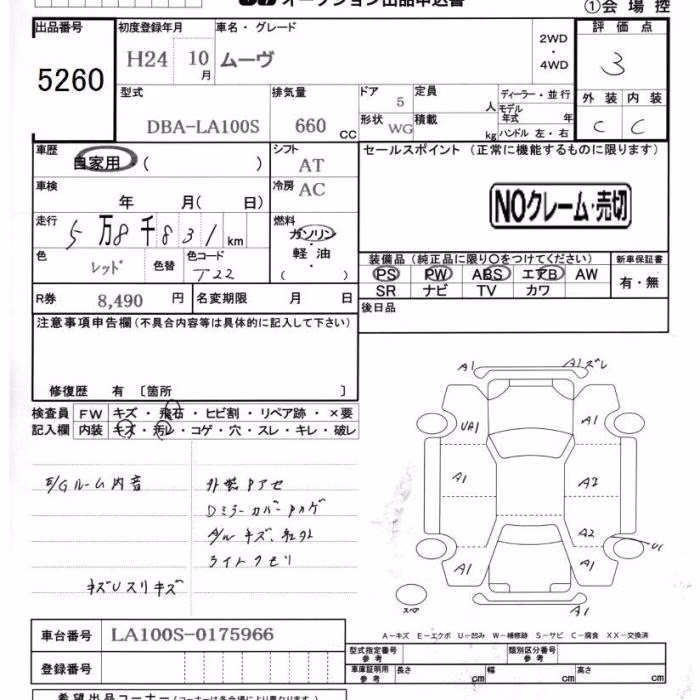 オークション出品申込書
①会場控
出品番号
5260
初度登録年月
H24 10月
車名・グレード
ムーヴ
2WD・4WD
評価点
3
型式
DBA-LA100S
排気量
660 CC
ドア
5
形状
WG
定員
人
積載
kg
ディーラー・並行
モデル年式 年
ハンドル 左・右
外装 内装
C C
車歴
自家用 ( )
シフト
AT
車検
年 月( 日)
冷房
AC
セールスポイント (正常に機能するものに限ります)
NOクレーム・売切
走行
5万8千831km
燃料
ガソリン・軽油・( )
色
レッド
色替
色コード
T22
装備品 (純正品に限り〇をつけてください)
PS PW ABS エアB AW
SR ナビ TV カワ
新車保証書
有・無
R券
8,490 円
名変期限 月 日
後日品
注意事項申告欄 (不具合内容等は具体的に記入して下さい)
修復歴 有 〔箇所 〕
検査員記入欄
FW キズ・飛石・ヒビ割・リペア跡・×要
内装 キズ・汚レ・コゲ・穴・スレ・キレ・破レ
E/Gルーム内音
キズUスリキズ
Dミラーカバー
ライトクモリ
A1 A1ズレ
UA1 A1
A1 A2
A2 U1
A1 A1
スペア A1 A1
A-キズ E-エクボ U-凹み W-補修跡 S-サビ C-腐食 XX-交換済
車台番号
LA100S-0175966
登録番号
型式指定番号 参考
類別区分番号 参考
車庫証明用 参考
長さ cm 幅 cm 高さ cm
希望出品コーナー